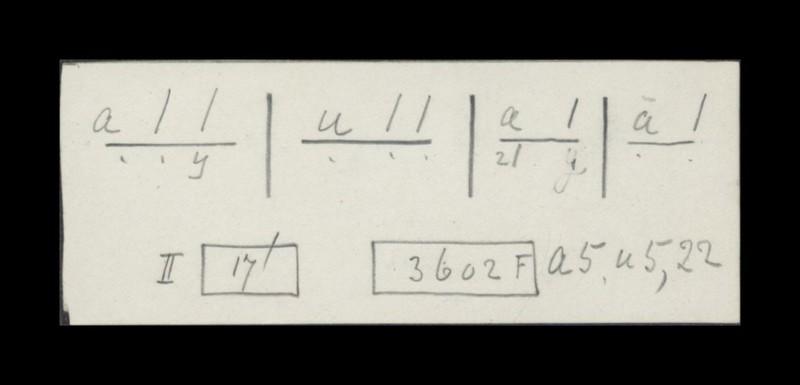 a / / | u / / | a / | ā /
. . y . . . 21 y . .
II 17/ 3602F a5, u5, 22